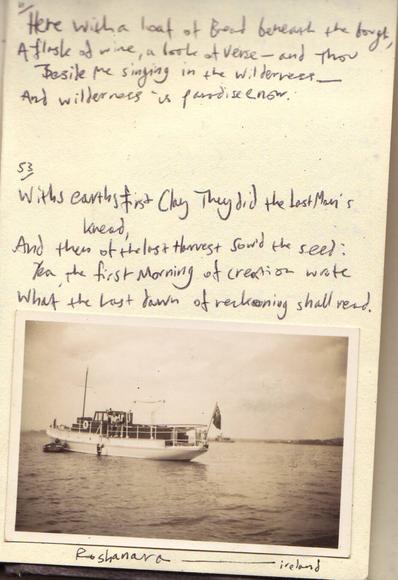 "Here with a loaf of Bread beneath the bough,
A flask of wine, a book of Verse — and Thou
Beside me singing in the wilderness —
And wilderness is paradise enow.
53
With earths first Clay They did the Last Man's
knead,
And then of the last Harvest sow'd the seed:
Yea, the first Morning of creation wrote
What the Last dawn of reckoning shall read.
Roshanara — ireland